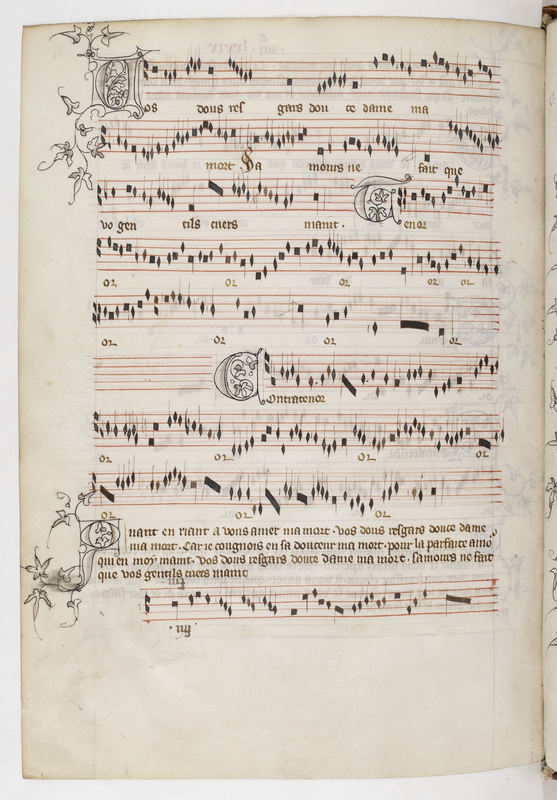 Vos dous res gars dou ce dame ma
mort Sa mours ne fait que
vo gen tils cuers maint . Tenor
oz oz oz oz oz
oz oz oz oz
Contratenor
oz oz oz oz
oz oz oz
Quant en riant a vous amer ma mort . vos dous resgars douce dame
ma mort . Car ie congnois en sa douceur ma mort . pour la parfaite amo
qui en moy maint . vos dous resgars douce dame ma mort . samours ne fait
que vos gentils cuers maint